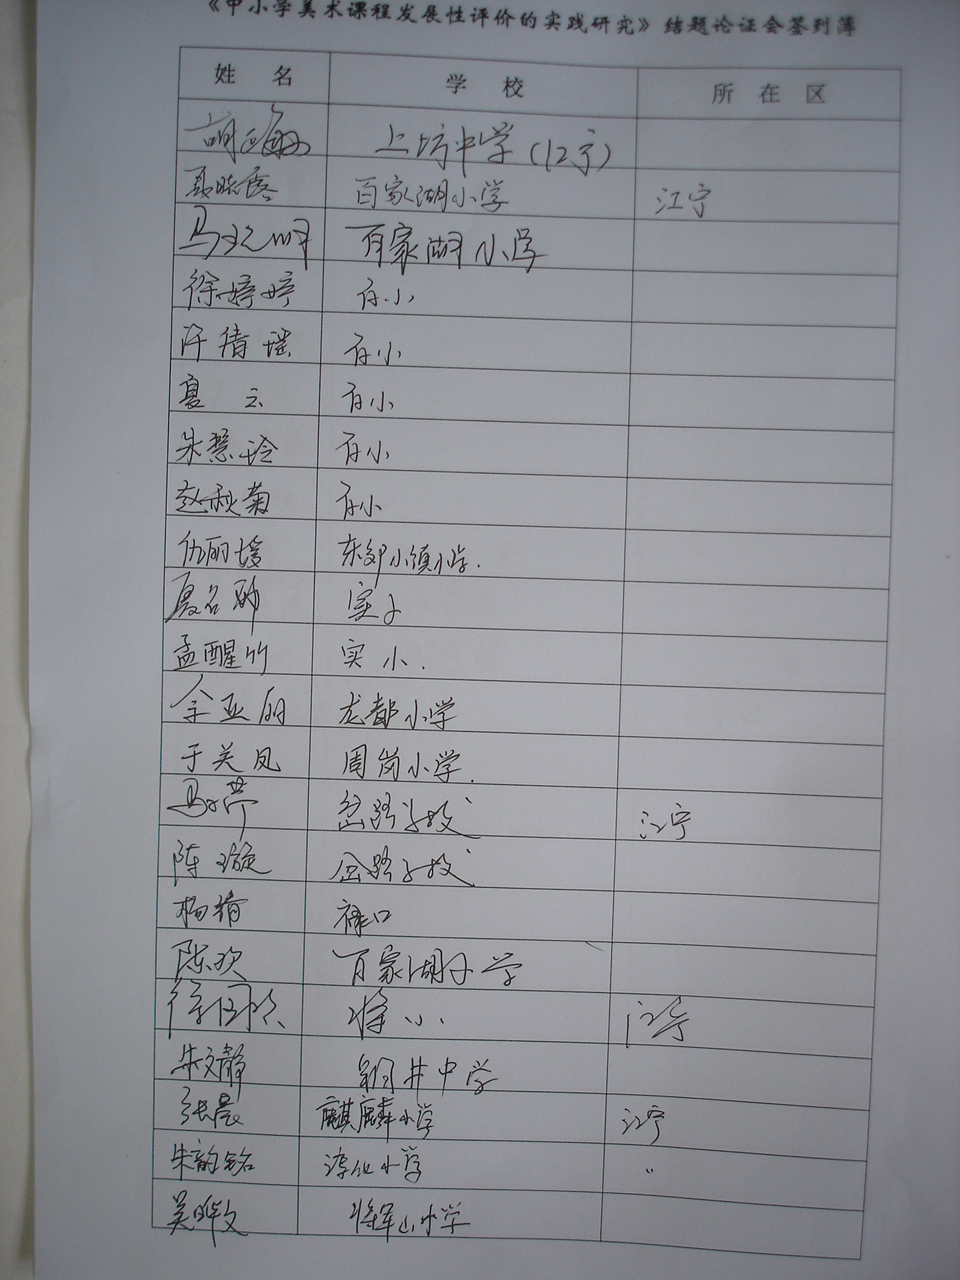 《中小学美术课程发展性评价的实践研究》结题论证会签到簿
姓 名 学 校 所 在 区
上坊中学(江宁)
聂晓露 百家湖小学 江宁
百家湖小学
徐婷婷 百小
许倩瑶 百小
夏 云 百小
朱慧玲 百小
赵秋菊 百小
仇丽媛 东郊小镇小学.
夏名 实小
孟醒竹 实小.
余亚丽 龙都小学
于美凤 周岗小学.
岔路学校 江宁
陈璇 岔路学校
杨婧 禄口
陈欢 百家湖小学
将小. 江宁
朱文静 铜井中学
张晨 麒麟小学 江宁
朱韵铭 淳化小学 〃
吴晔文 将军山小学